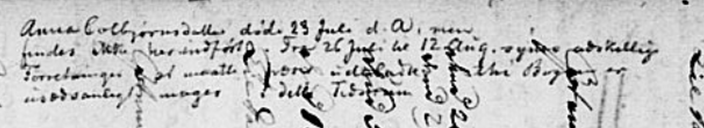 Anna Colbjørnsdatter døde 23 Juli d. A., men
findes ikke her indført. Fra 26 Juli til 12 Aug. synes adskillige
Forretninger at maatte være udeladte, thi Bogen er
usædvanligt mager i dette Tidsrum